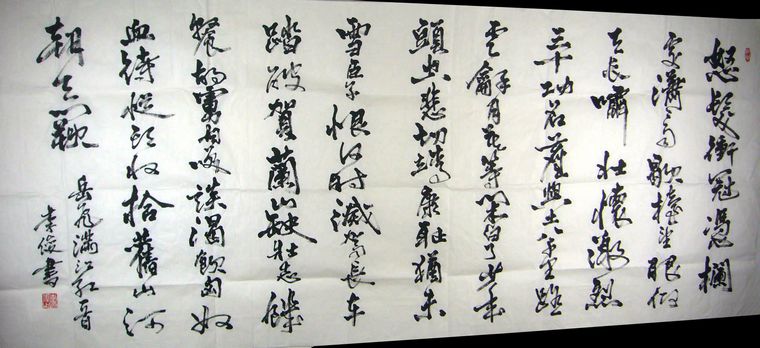 怒髮衝冠憑欄
處瀟々雨歇擡望眼仰
天長嘯壯懷激烈
三十功名塵與土八千里路
雲龢月莫等閒白了少年
頭空悲切靖康耻猶未
雪臣子恨何時滅駕長車
踏破賀蘭山缺壯志饑
餐胡虜肉笑談渴飲匈奴
血待從頭收拾舊山河
朝天闕
岳飛满江红一首
李俊書